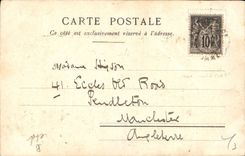 CARTE POSTALE
Ce côté est exclusivement réservé à l'adresse.
10
Madame Higson
41. Eccles Old Road
Pendleton
Manchester
Angleterre